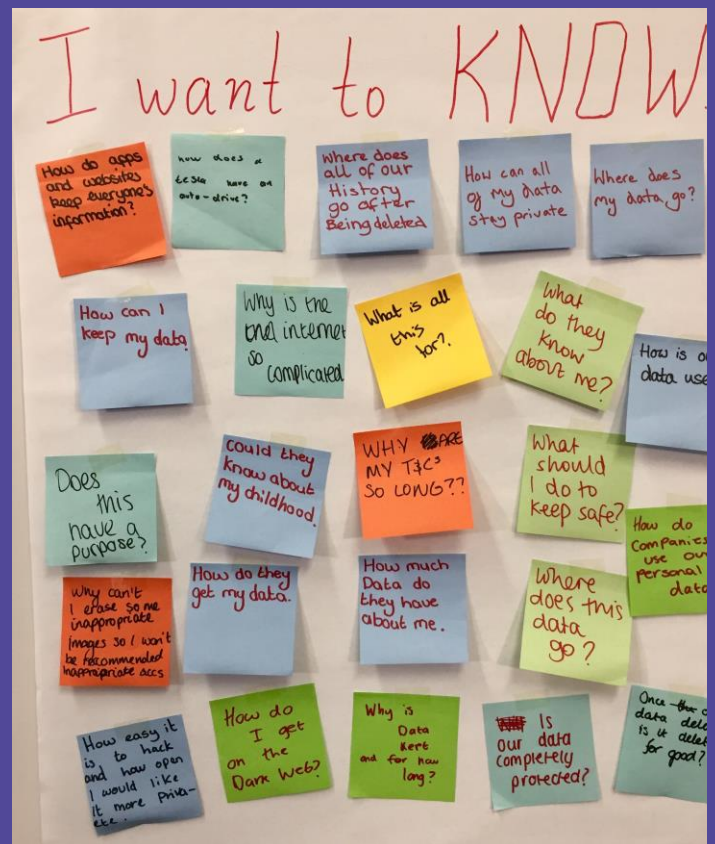 I want to KNOW
How do apps
and websites
keep everyone's
information?
how does a
tesla have an
auto-drive?
Where does
all of our
History
go after
Being deleted
How can all
of my data
stay private
Where does
my data go?
How can I
keep my data
Why is the
internet
so
complicated
What is all
this
for?
What
do they
know
about me?
How is
data use
Does
this
have a
purpose?
Could they
know about
my childhood.
WHY ARE
MY T&Cs
SO LONG??
What
should
I do to
keep safe?
How do
companies
use our
personal
data
Why can't
I erase some
inappropriate
Images so I won't
be recommended
inappropriate accs
How do they
get my data.
How much
Data do
they have
about me.
Where
does this
data
go?
How easy it
is to hack
and how open
I would like
it more priva-
ete.
How do
I get
on the
Dark Web?
Why is
Data
Kept
and for how
long?
Is
our data
completely
protected?
Once
data dele
is it delet
for good?